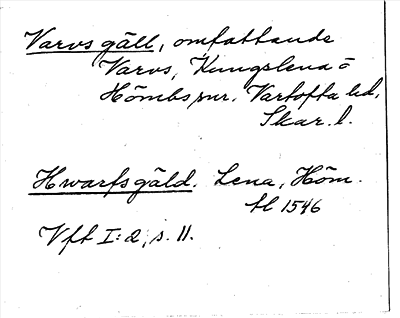 Varvs gäll, omfattande
Varvs, Kungslena o
Hömbs snr. Vartofta hd,
Skar. l.
Hwarfs gäld. Lena, Höm.
tl 1546
Vft I:2, s. 11.